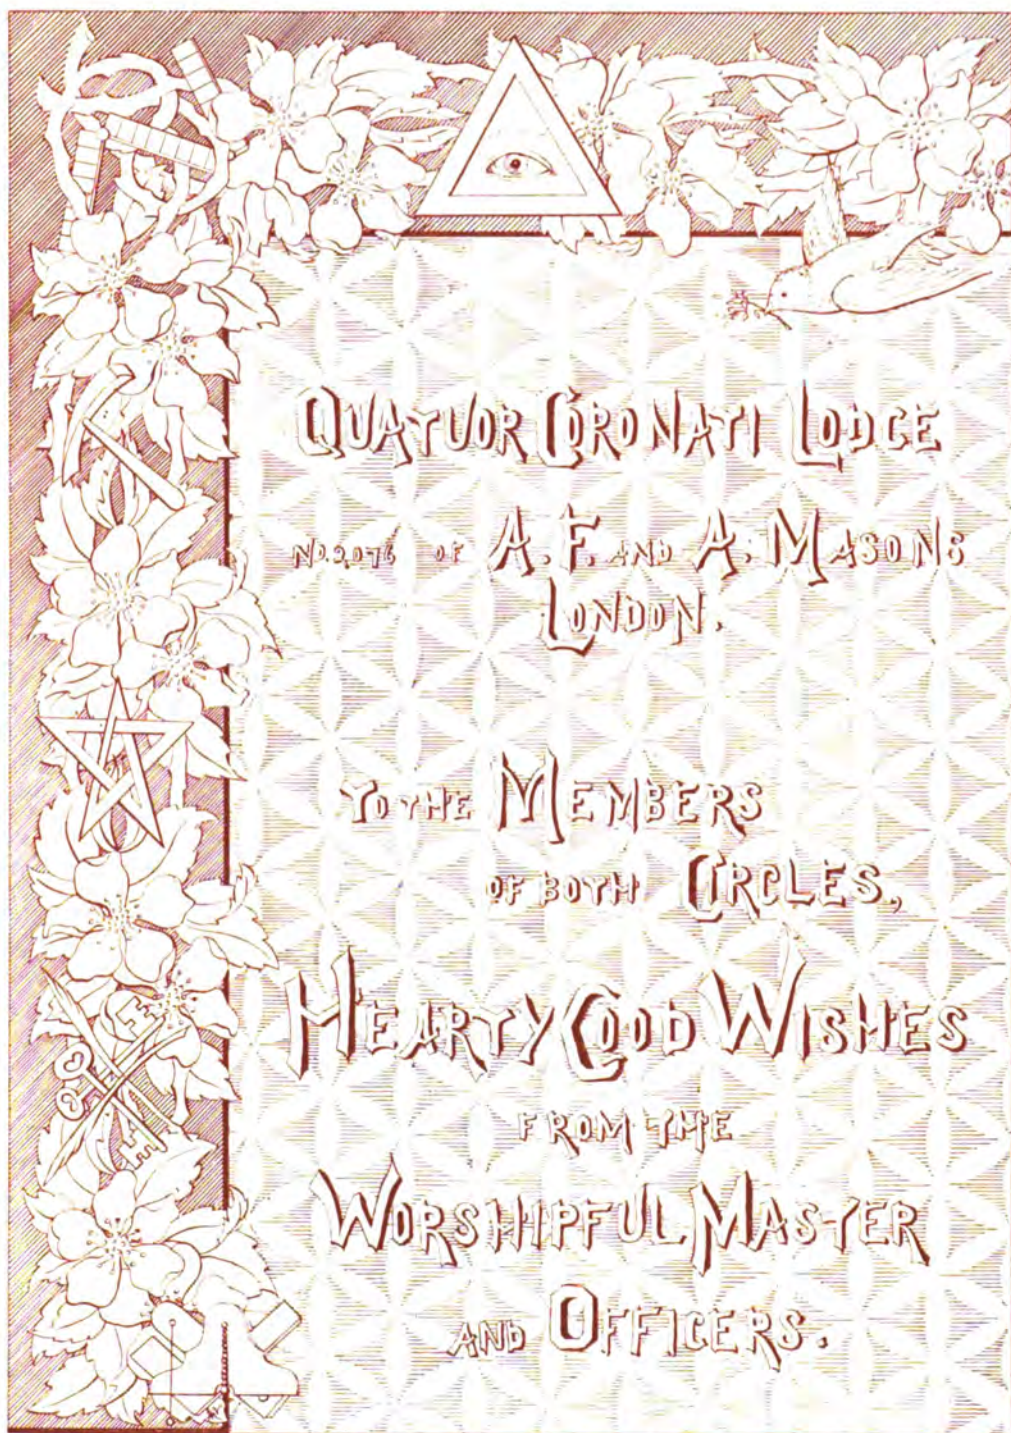 QUATUOR CORONATI LODGE
NO. 2,076 OF A. F. AND A. MASONS
LONDON.
TO THE MEMBERS
OF BOTH CIRCLES,
HEARTY GOOD WISHES
FROM THE
WORSHIPFUL MASTER
AND OFFICERS.